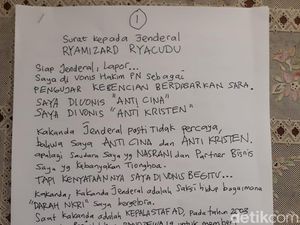 1
Surat kepada Jenderal
RYAMIZARD RYACUDU
Siap Jenderal, Lapor...
Saya di vonis Hakim PN sebagai
PENGUJAR KEBENCIAN BERDASARKAN SARA.
SAYA DIVONIS "ANTI CINA"
SAYA DIVONIS "ANTI KRISTEN"
Kakanda Jenderal pasti tidak percaya,
bahwa Saya ANTI CINA dan ANTI KRISTEN.
apalagi Saudara Saya yg NASRANI dan Partner Bisnis
Saya yg Kebanyakan Tionghoa.
TAPI KENYATAANNYA SAYA DIVONIS BEGITU...
Kakanda, Kakanda Jenderal adalah Saksi hidup bagaimana
"DARAH NKRI" Saya bergelora.
Saat Kakanda adalah KEPALA STAF AD, Pada tahun 2003
untuk
detikcom